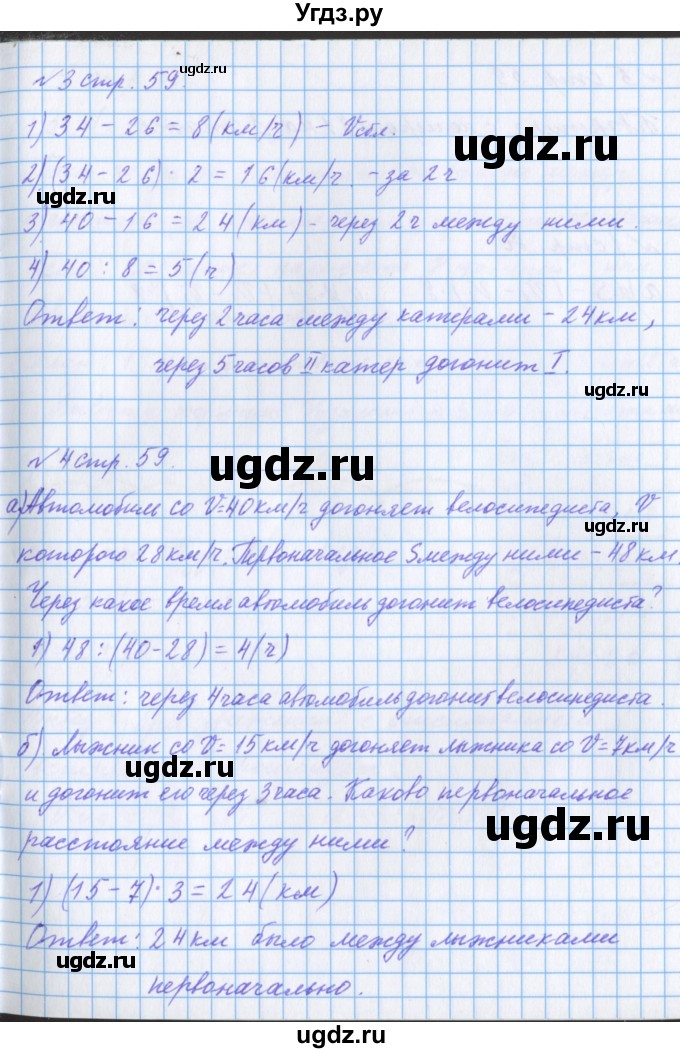 Угдз.ру
№3 стр. 59.
gdz.ru
1) 34 – 26 = 8 (км/ч) – Vсбл.
ugdz.ru
2) (34 – 26) · 2 = 16 (км/ч. – за 2ч
ugdz.ru
3) 40 – 16 = 24 (км) – через 2ч между ними.
4) 40 : 8 = 5 (ч)
Ответ: через 2 часа между катерами – 24 км,
через 5 часов II катер догонит I.
ugdz.ru
№4 стр. 59.
ugdz.ru
а) Автомобиль со V=40 км/ч догоняет велосипедиста, V
ugdz.ru
которого 28 км/ч. Первоначальное S между ними – 48 км.
Через какое время автомобиль догонит велосипедиста?
1) 48 : (40-28) = 4 (ч)
ugdz.ru
Ответ: через 4 часа автомобиль догонит велосипедиста.
б) Лыжник со V= 15 км/ч догоняет лыжника со V=7км/ч
ugdz.ru
и догонит его через 3 часа. Каково первоначальное
расстояние между ними?
ugdz.ru
1) (15 – 7) · 3 = 24 (км)
Ответ: 24 км было между лыжниками
ugdz.ru
первоначально.
ugdz.ru